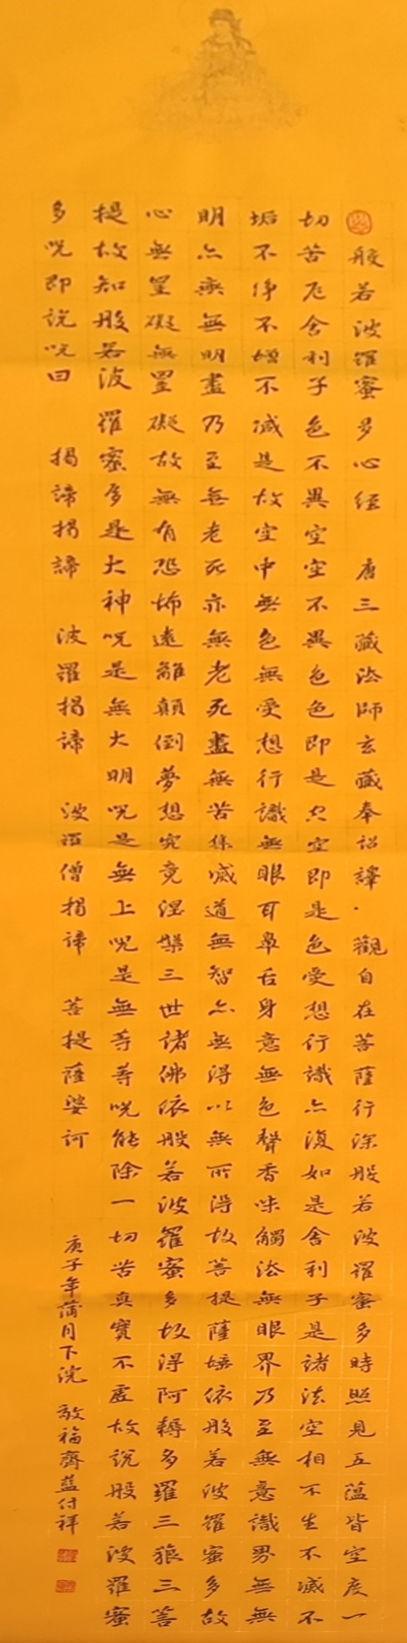 般若波羅蜜多心经 唐三藏法師玄藏奉詔譯·觀自在菩薩行深般若波羅蜜多時照見五蕴皆空度一
切苦厄舍利子色不異空空不異色色即是空空即是色受想行識亦復如是舍利子是諸法空相不生不滅不
垢不净不增不減是故空中無色無受想行識無眼耳鼻舌身意無色聲香味觸法無眼界乃至無意識界無無
明亦無無明盡乃至無老死亦無老死盡無苦集滅道無智亦無得以無所得故菩提薩埵依般若波羅蜜多故
心無罣礙無罣礙故無有恐怖遠離顛倒夢想究竟涅槃三世諸佛依般若波羅蜜多故得阿耨多羅三藐三菩
提故知般若波羅蜜多是大神咒是無大明咒是無上咒是無等等咒能除一切苦真實不虛故說般若波羅蜜
多咒即說咒曰 揭諦揭諦 波羅揭諦 波羅僧揭諦 菩提薩娑訶
庚子年蒲月下浣 敬福齋藍付祥